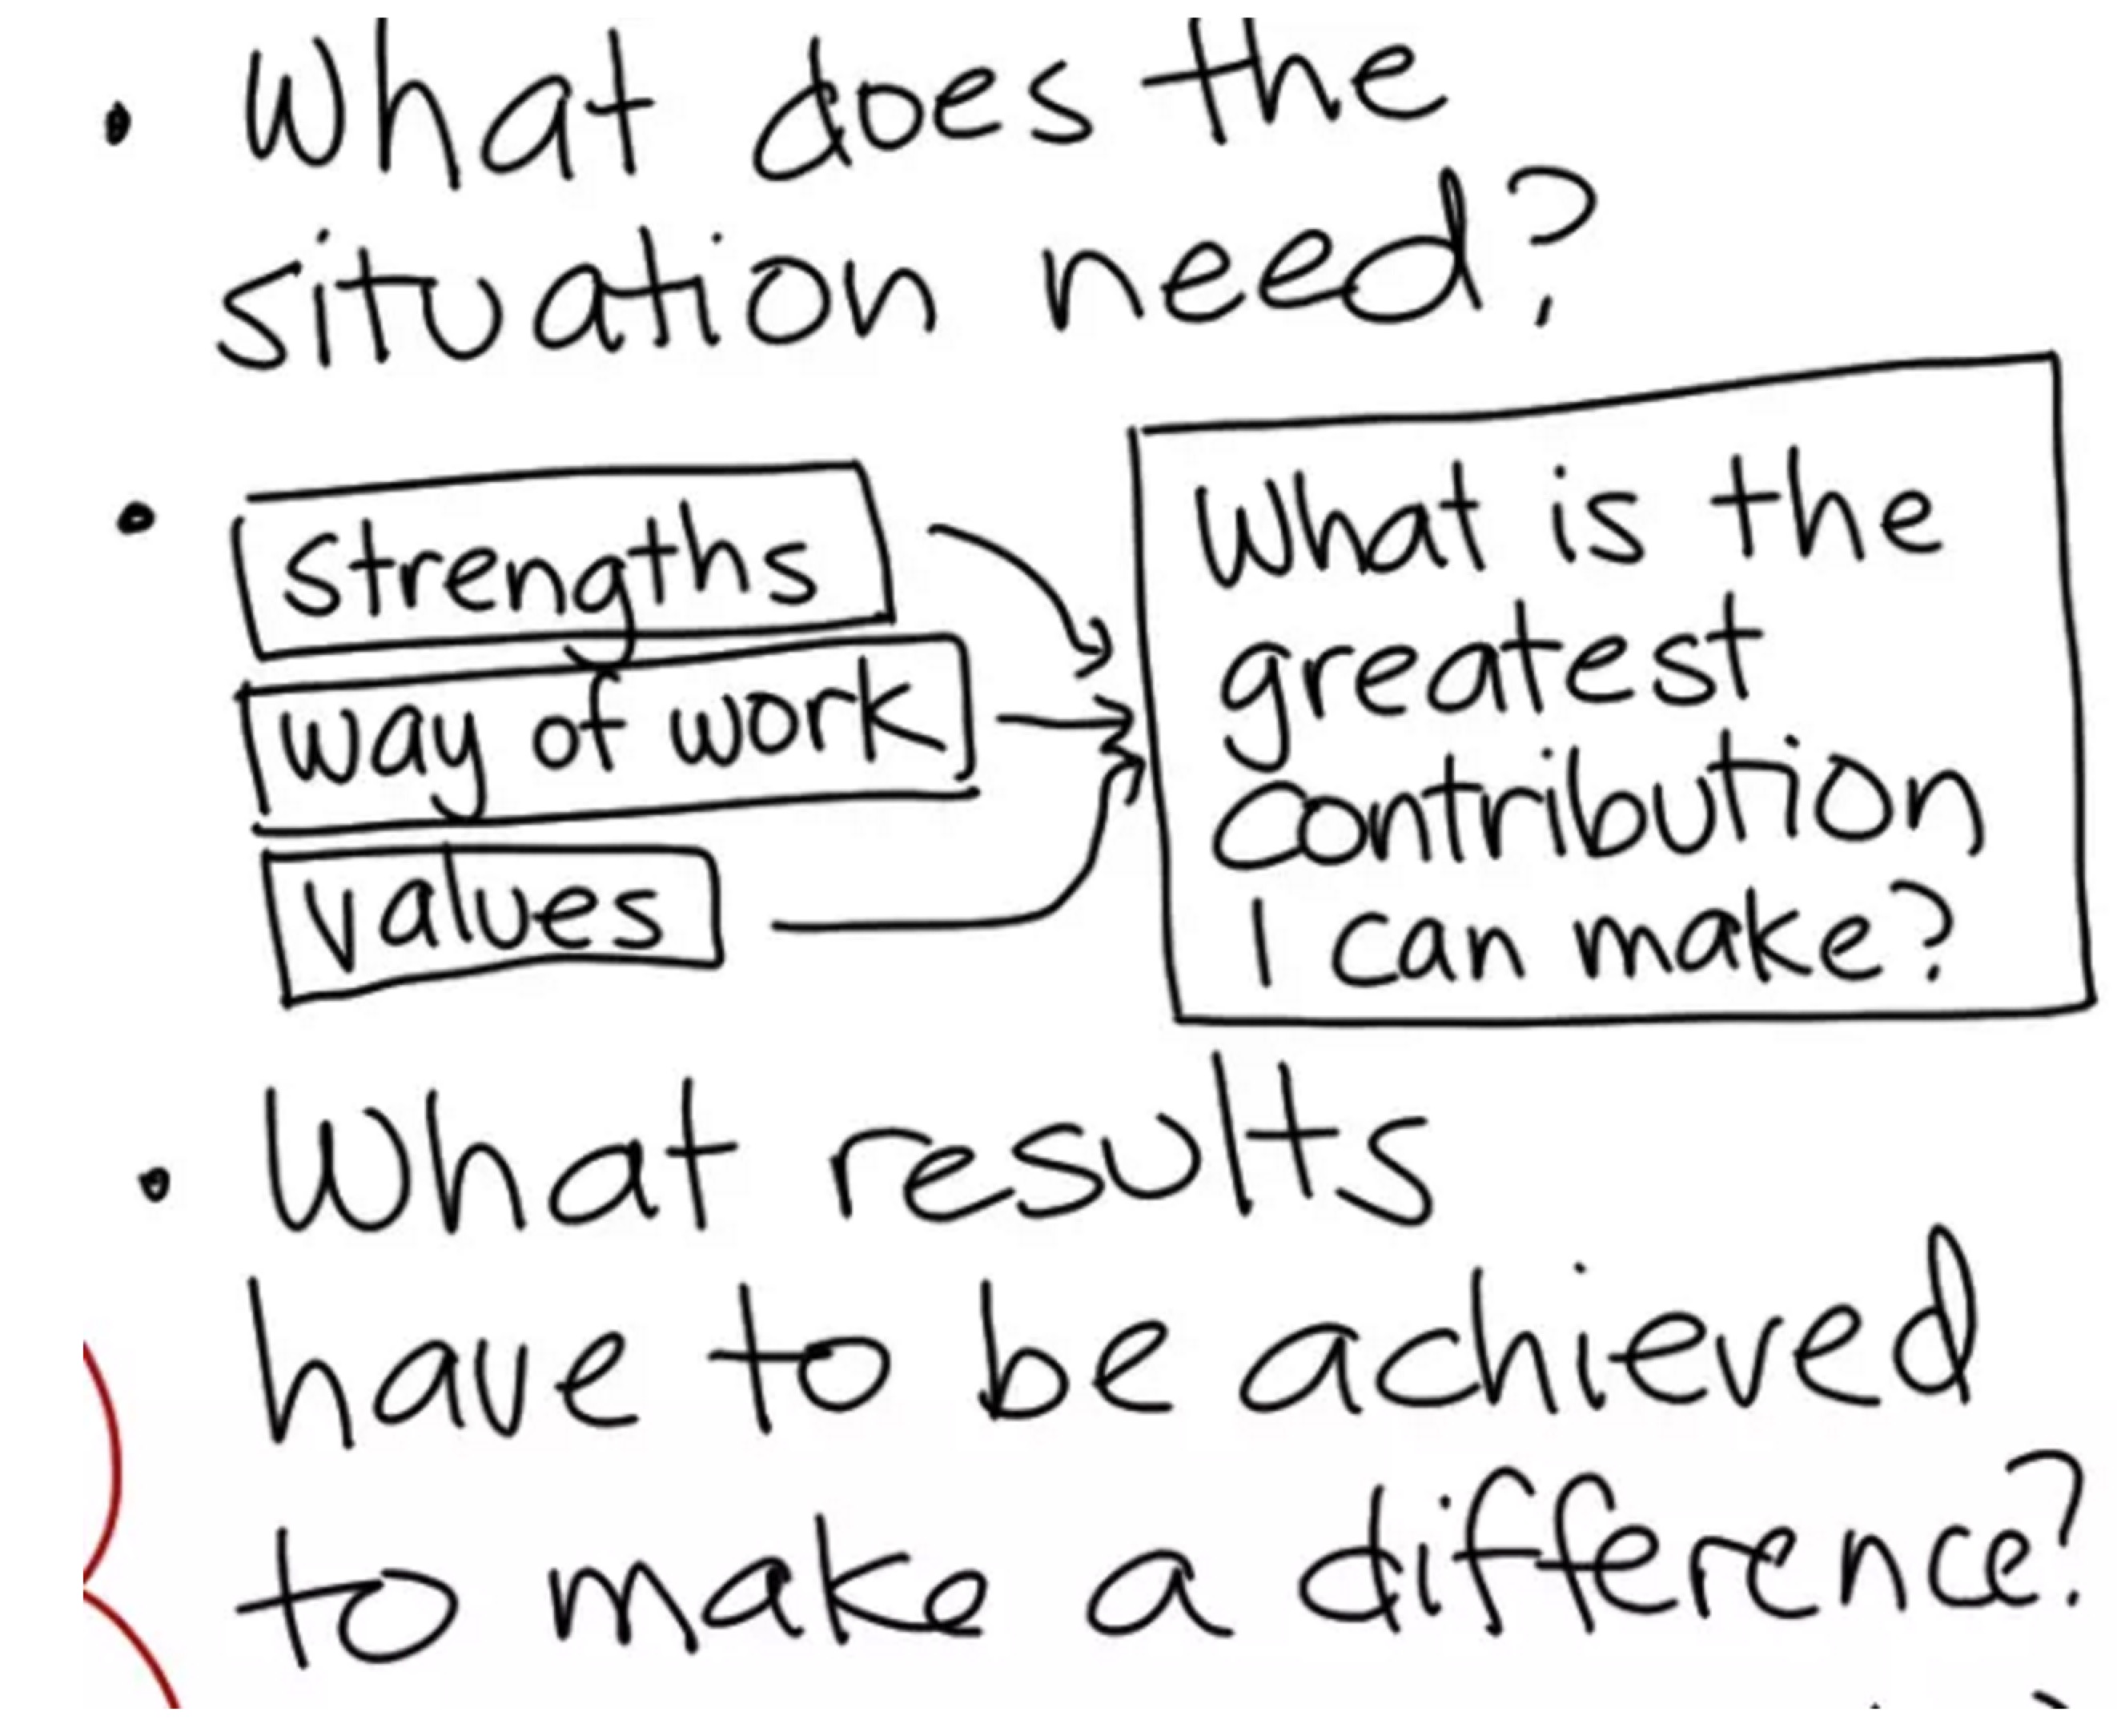 • What does the
situation need?
• strengths
way of work
values
What is the
greatest
contribution
I can make?
• What results
have to be achieved
to make a difference?